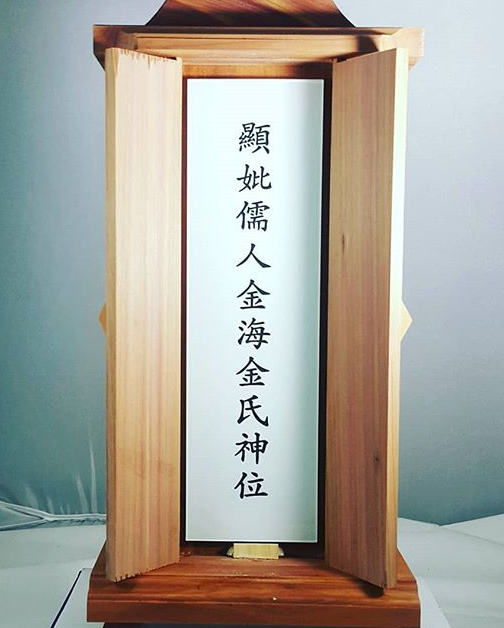 顯妣儒人金海金氏神位